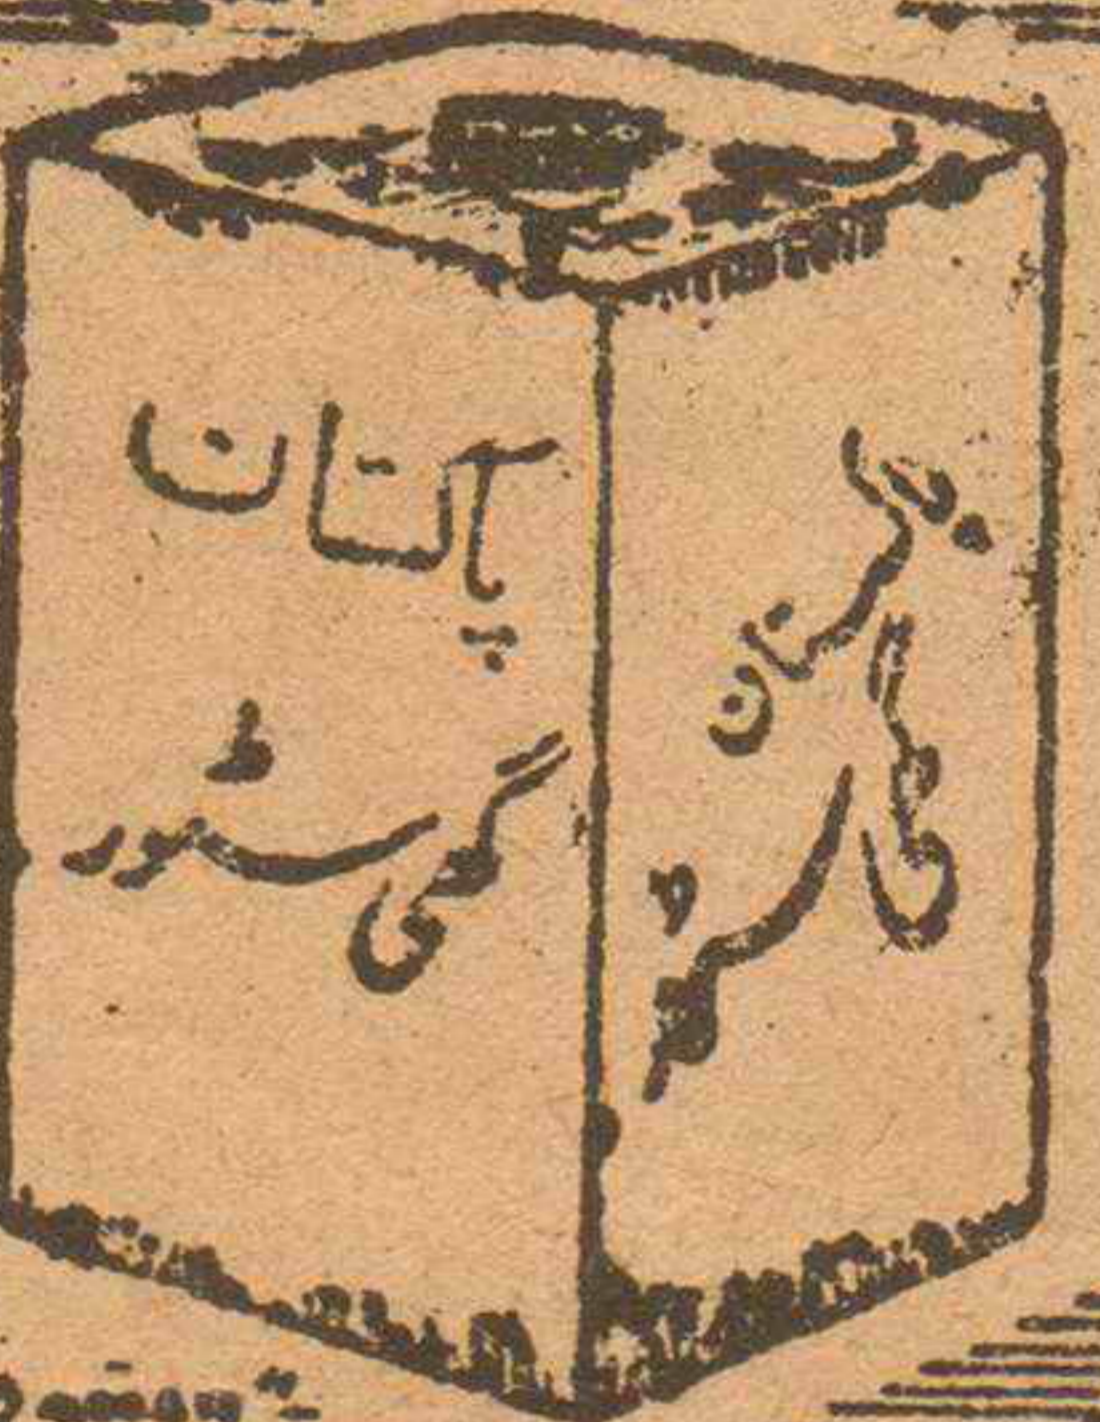 پاکستان
گھی سٹور
پاکستان
گھی سٹور